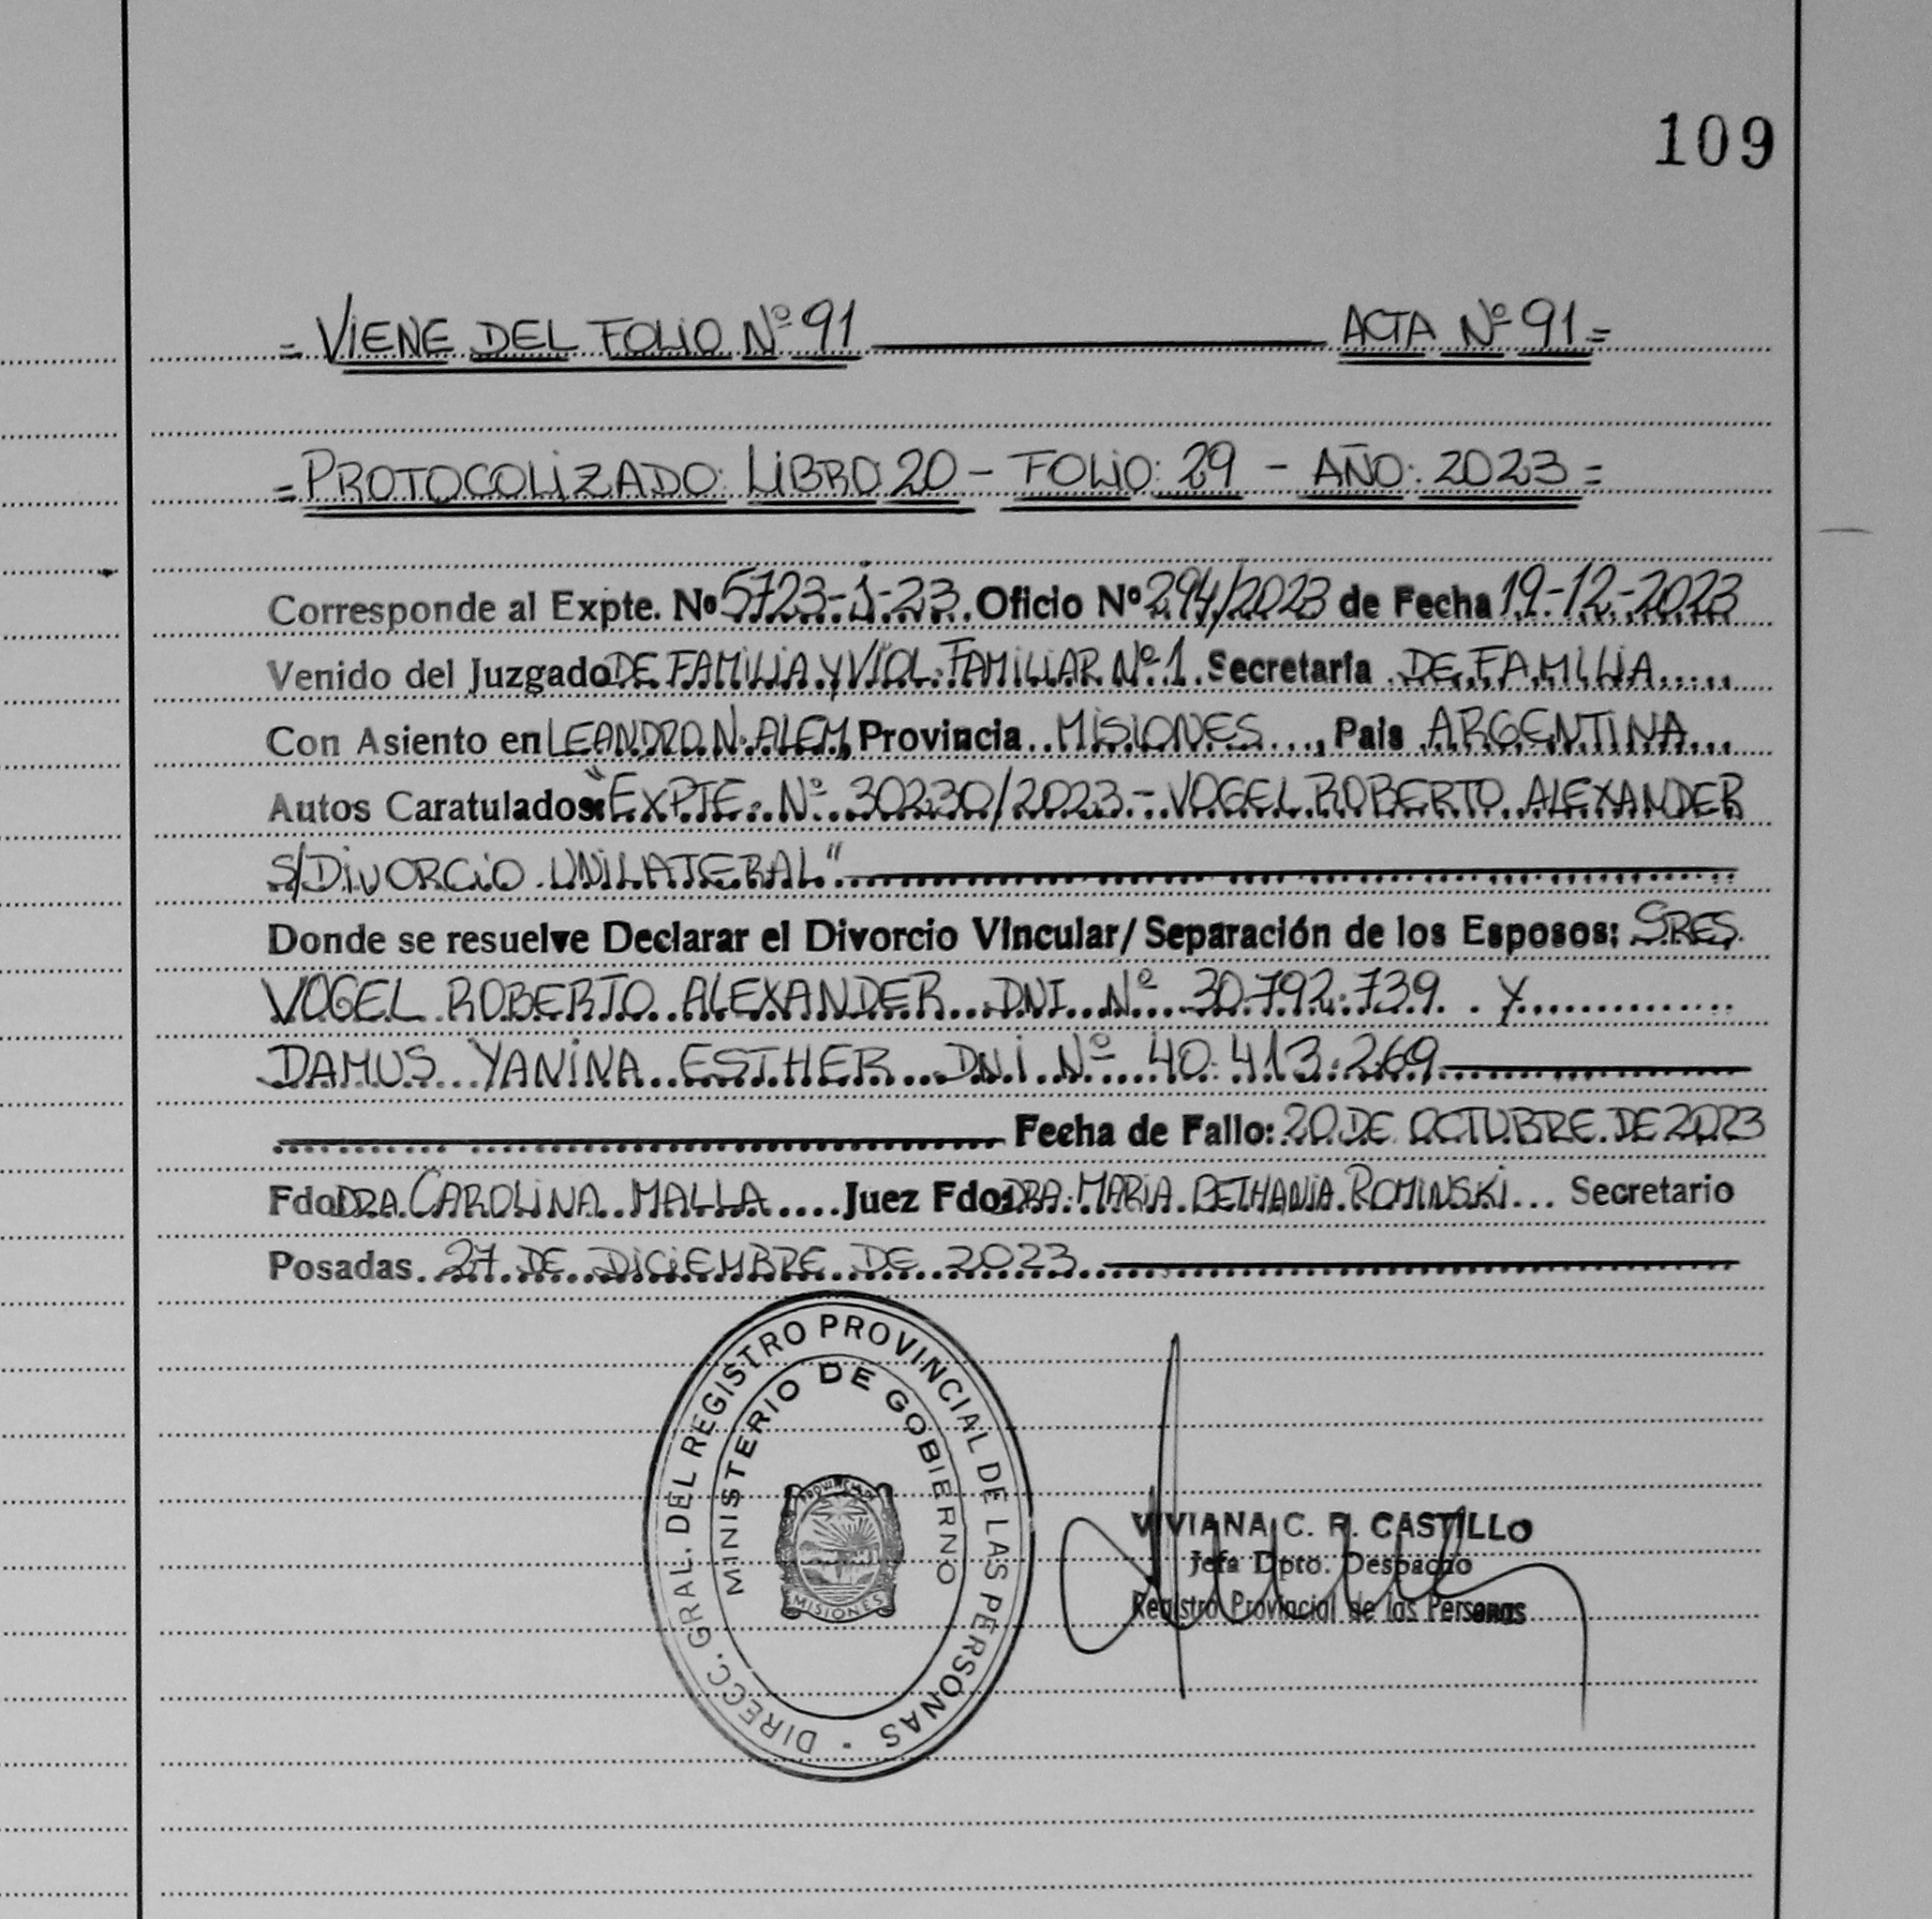 109
= VIENE DEL FOLIO Nº 91 ACTA Nº 91 =
= PROTOCOLIZADO: LIBRO 20 - FOLIO: 29 - AÑO: 2023 =
Corresponde al Expte. Nº 5723-J-23. Oficio Nº 294/2023 de Fecha 19-12-2023
Venido del Juzgado DE FAMILIA Y VIOL. FAMILIAR Nº 1. Secretaría DE FAMILIA.....
Con Asiento en LEANDRO N. ALEM, Provincia MISIONES..., País ARGENTINA...
Autos Caratulados: "EXPTE. Nº 30230/2023 - VOGEL ROBERTO ALEXANDER
S/DIVORCIO UNILATERAL"
Donde se resuelve Declarar el Divorcio Vincular/Separación de los Esposos: SRES.
VOGEL ROBERTO ALEXANDER DNI Nº 30.792.739. Y
DAMUS YANINA ESTHER DNI Nº 40.413.269
Fecha de Fallo: 20 DE OCTUBRE DE 2023
Fdo: DRA. CAROLINA MALLA.... Juez Fdo: DRA. MARIA BETHANIA ROMINSKI... Secretario
Posadas. 27 DE DICIEMBRE DE 2023
DIRECC. GRAL. DEL REGISTRO PROVINCIAL DE LAS PERSONAS
MINISTERIO DE GOBIERNO
MISIONES
VIVIANA C. R. CASTILLO
Jefa Dpto. Despacho
Registro Provincial de las Personas